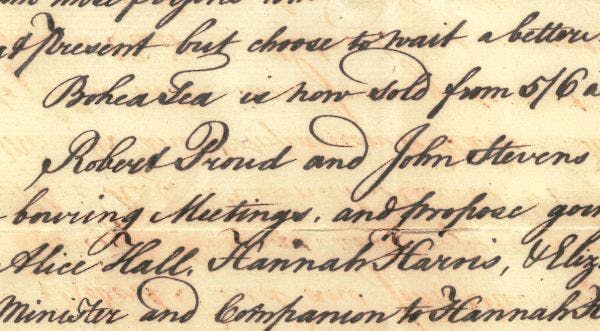 at Present but choose to wait a better
Bohea Tea is now sold from 5/6 a
Robert Proud and John Stevens
bouring Meetings, and propose goin
Alice Hall, Hannah Harris, & Eliz
Minister and Companion to Hannah H